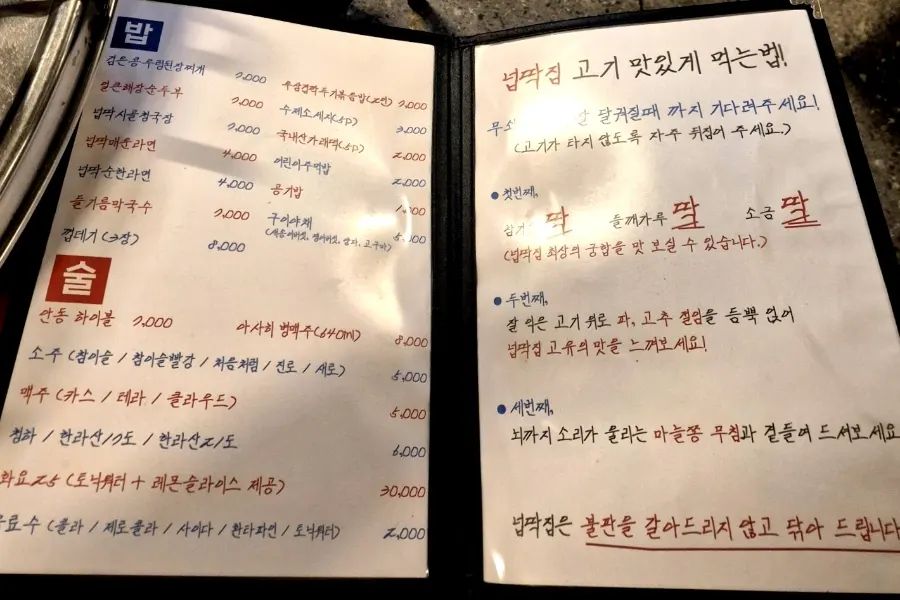 밥
검은콩 우렁된장찌개 7,000
얼큰해장순두부 7,000
넙딱시골청국장 7,000
넙딱매운라면 4,000
넙딱순한라면 4,000
들기름막국수 7,000
껍데기 (3장) 8,000
우삼겹깍두기볶음밥(2인) 7,000
수제소세지(5p) 3,000
국내산가래떡(5p) 2,000
어린이주먹밥 2,000
공기밥
구이야채 5,000
술
안동 하이볼 7,000
아사히 병맥주(640ml) 8,000
소주 (참이슬 / 참이슬빨강 / 처음처럼 / 진로 / 새로) 5,000
맥주 (카스 / 테라 / 클라우드) 5,000
청하 / 한라산17도 / 한라산21도 6,000
화요25 (토닉워터 + 레몬슬라이스 제공) 30,000
음료수 (콜라 / 제로콜라 / 사이다 / 환타파인 / 토닉워터) 2,000
넙딱집 고기 맛있게 먹는법!
달궈질때 까지 기다려주세요!
(고기가 타지 않도록 자주 뒤집어 주세요.)
● 첫번째,
딱 들깨가루 딱 소금 딱
(넙딱집 최상의 궁합을 맛 보실 수 있습니다.)
● 두번째,
잘 익은 고기 위로 파, 고추 절임을 듬뿍 얹어
넙딱집 고유의 맛을 느껴보세요!
● 세번째,
뇌까지 소리가 울리는 마늘쫑 무침과 곁들여 드셔보세요
넙딱집은 불판을 갈아드리지 않고 닦아 드립니다